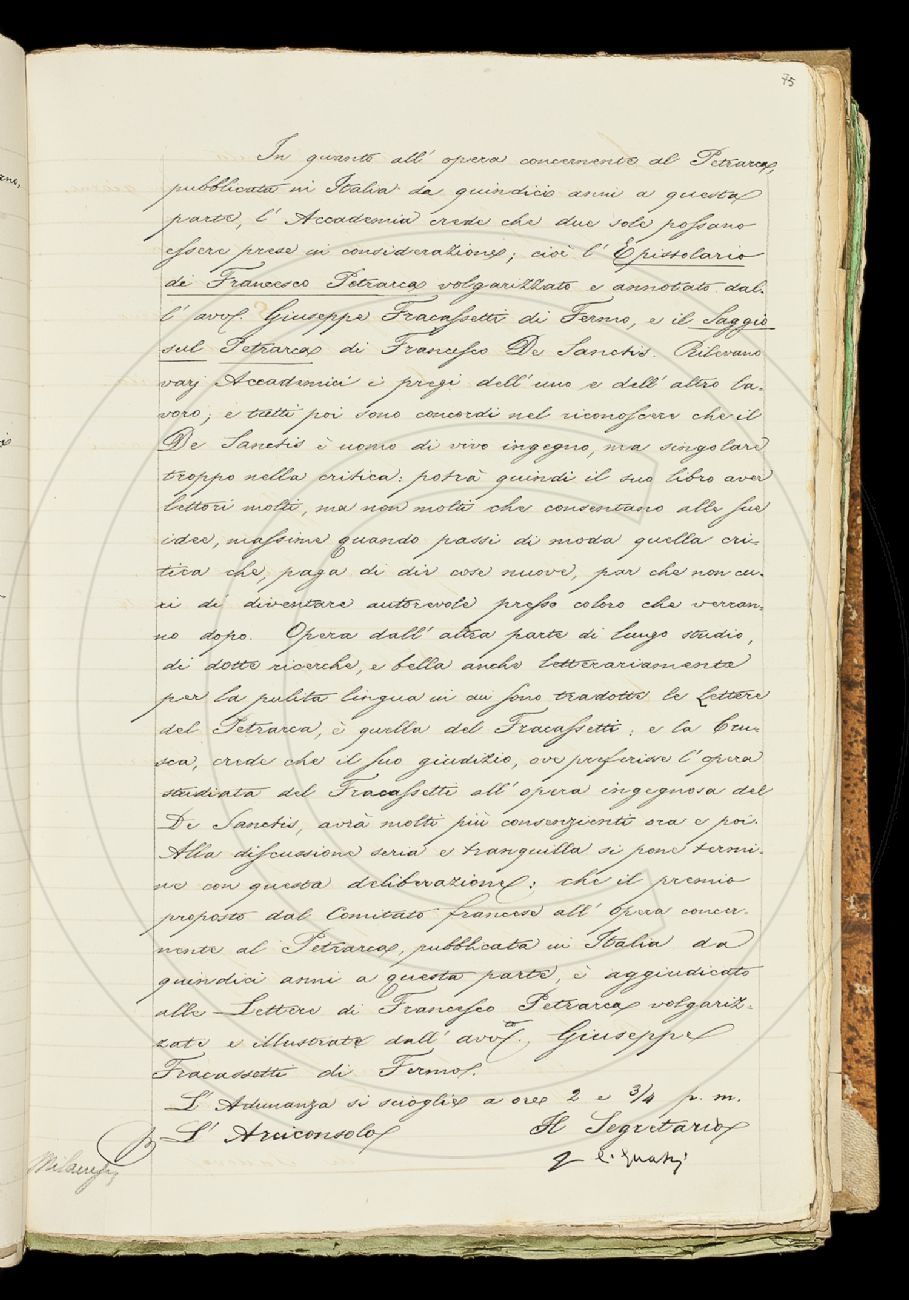 75
In quanto all' opera concernente al Petrarca,
pubblicata in Italia da quindici anni a questa
parte, l' Accademia crede che due sole possano
essere prese in considerazione; cioè l' Epistolario
di Francesco Petrarca volgarizzato e annotato dal-
l' avv. Giuseppe Fracassetti di Fermo, e il Saggio
sul Petrarca di Francesco De Sanctis. Rilevano
varj Accademici i pregi dell' uno e dell' altro la-
voro; e tutti poi sono concordi nel riconoscere che il
De Sanctis è uomo di vivo ingegno, ma singolare
troppo nella critica: potrà quindi il suo libro aver
lettori molti, ma non molti che consentano alle sue
idee, massime quando passi di moda quella cri-
tica che, paga di dir cose nuove, par che non cu-
ri di diventare autorevole presso coloro che verran-
no dopo. Opera dall' altra parte di lungo studio,
di dotte ricerche, e bella anche letterariamente
per la pulita lingua in cui sono tradotte le Lettere
del Petrarca, è quella del Fracassetti; e la Cru-
sca, crede che il suo giudizio, ove preferisse l' opera
studiata del Fracassetti all' opera ingegnosa del
De Sanctis, avrà molti più consenzienti ora e poi.
Alla discussione seria e tranquilla si pone termi-
ne con questa deliberazione: che il premio
proposto dal Comitato francese all' opera concer-
nente al Petrarca, pubblicata in Italia da
quindici anni a questa parte, è aggiudicato
alle Lettere di Francesco Petrarca volgariz-
zate e illustrate dall' avv.to Giuseppe
Fracassetti di Fermo.
L' Adunanza si scioglie a ore 2 e 3/4 p. m.
L' Arciconsolo Il Segretario